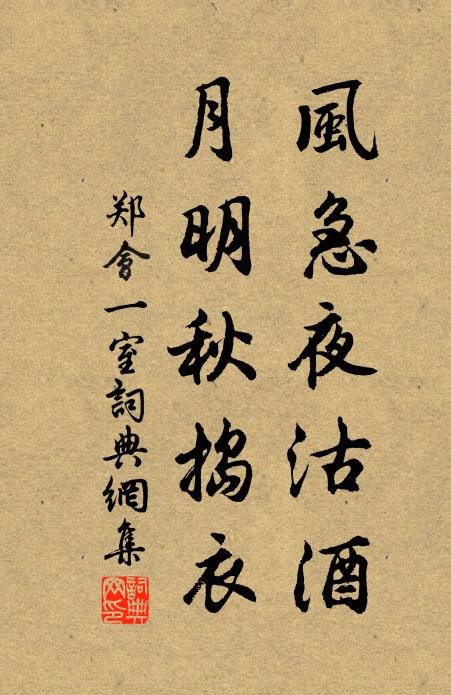 風急夜沽酒
月明秋搗衣
郑會一室詞典網集
詞典网印